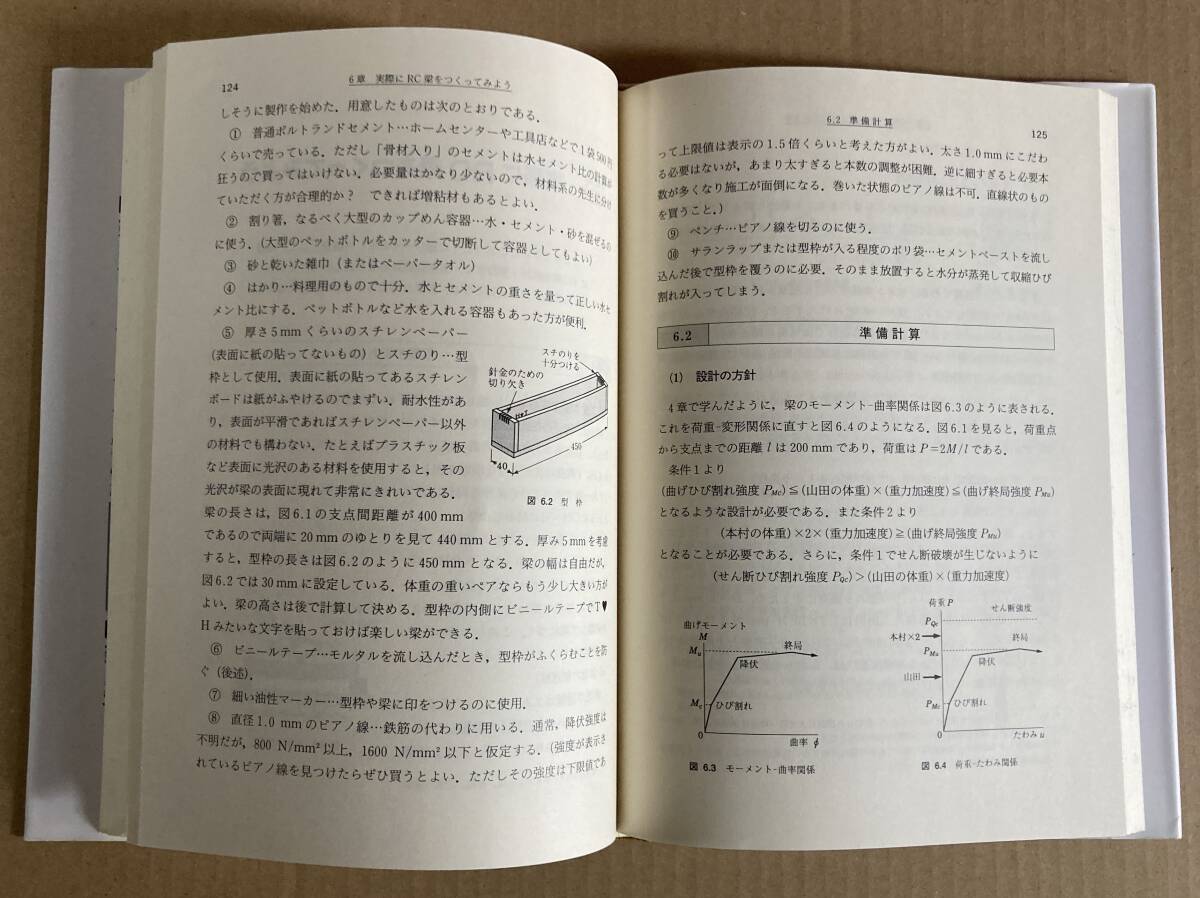 124
6章 実際に RC 梁をつくってみよう
しそうに製作を始めた．用意したものは次のとおりである．
① 普通ポルトランドセメント…ホームセンターや工具店などで1袋500円
くらいで売っている．ただし「骨材入り」のセメントは水セメント比の計算が
狂うので買ってはいけない．必要量はかなり少ないので，材料系の先生に分け
ていただく方が合理的か？ できれば増粘材もあるとよい．
② 割り箸，なるべく大型のカップめん容器…水・セメント・砂を混ぜるの
に使う．(大型のペットボトルをカッターで切断して容器としてもよい)
③ 砂と乾いた雑巾（またはペーパータオル）
④ はかり…料理用のもので十分．水とセメントの重さを量って正しい水セ
メント比にする．ペットボトルなど水を入れる容器もあった方が便利．
⑤ 厚さ5mmくらいのスチレンペーパー
(表面に紙の貼ってないもの）とスチのり…型
枠として使用．表面に紙の貼ってあるスチレン
ボードは紙がふやけるのでまずい．耐水性があ
り，表面が平滑であればスチレンペーパー以外
の材料でも構わない．たとえばプラスチック板
など表面に光沢のある材料を使用すると，その
光沢が梁の表面に現れて非常にきれいである．
梁の長さは，図6.1の支点間距離が400mm
であるので両端に20mmのゆとりを見て440mmとする．厚み5mmを考慮
すると，型枠の長さは図6.2のように450mmとなる．梁の幅は自由だが，
図6.2では30mmに設定している．体重の重いペアならもう少し大きい方が
よい．梁の高さは後で計算して決める．型枠の内側にビニールテープでT♥
Hみたいな文字を貼っておけば楽しい梁ができる．
⑥ ビニールテープ…モルタルを流し込んだとき，型枠がふくらむことを防
ぐ（後述）．
⑦ 細い油性マーカー…型枠や梁に印をつけるのに使用．
⑧ 直径1.0 mmのピアノ線…鉄筋の代わりに用いる．通常，降伏強度は
不明だが，800 N/mm²以上，1600 N/mm²以下と仮定する．(強度が表示さ
れているピアノ線を見つけたらぜひ買うとよい．ただしその強度は下限値であ
スチのりを
十分つける
針金のための
切り欠き
450
40
図 6.2 型 枠
6.2 準備計算
125
って上限値は表示の1.5倍くらいと考えた方がよい．太さ1.0mmにこだわ
る必要はないが，あまり太すぎると本数の調整が困難．逆に細すぎると必要本
数が多くなり施工が面倒になる．巻いた状態のピアノ線は不可．直線状のもの
を買うこと．)
⑨ ペンチ…ピアノ線を切るのに使う．
⑩ サランラップまたは型枠が入る程度のポリ袋…セメントペーストを流し
込んだ後で型枠を覆うのに必要．そのまま放置すると水分が蒸発して収縮ひび
割れが入ってしまう．
6.2 準備計算
(1) 設計の方針
4章で学んだように，梁のモーメント-曲率関係は図6.3のように表される．
これを荷重-変形関係に直すと図6.4のようになる．図6.1を見ると，荷重点
から支点までの距離 l は200 mmであり，荷重は P=2M/l である．
条件1より
(曲げひび割れ強度 PMc)≦(山田の体重)×(重力加速度)≦(曲げ終局強度 PMu)
となるような設計が必要である．また条件2より
(本村の体重)×2×(重力加速度)≧(曲げ終局強度 PMu)
となることが必要である．さらに，条件1でせん断破壊が生じないように
(せん断ひび割れ強度 PQc)＞(山田の体重)×(重力加速度)
曲げモーメント
M
Mu
終局
降伏
Mc
ひび割れ
0
曲率 φ
図 6.3 モーメント-曲率関係
荷重 P
せん断強度
PQc
本村×2
PMu
終局
降伏
山田
PMc
ひび割れ
0
たわみ u
図 6.4 荷重-たわみ関係